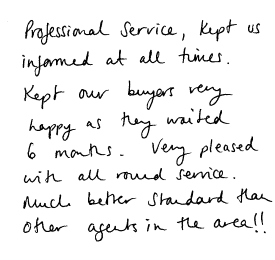 Professional Service, kept us
informed at all times.
Kept our buyers very
happy as they waited
6 months. Very pleased
with all round service.
Much better standard than
other agents in the area!!